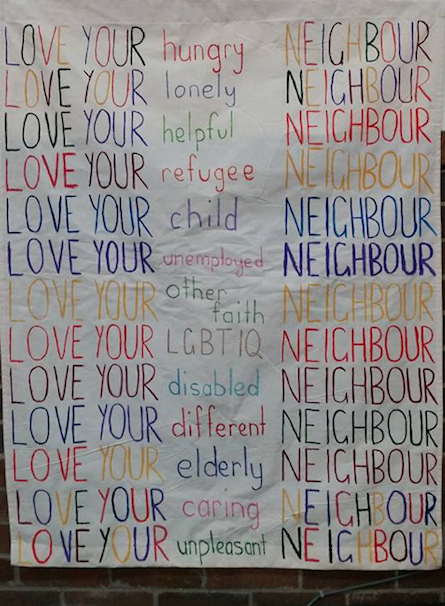 LOVE YOUR hungry NEIGHBOUR
LOVE YOUR lonely NEIGHBOUR
LOVE YOUR helpful NEIGHBOUR
LOVE YOUR refugee NEIGHBOUR
LOVE YOUR child NEIGHBOUR
LOVE YOUR unemployed NEIGHBOUR
LOVE YOUR other faith NEIGHBOUR
LOVE YOUR LGBTIQ NEIGHBOUR
LOVE YOUR disabled NEIGHBOUR
LOVE YOUR different NEIGHBOUR
LOVE YOUR elderly NEIGHBOUR
LOVE YOUR caring NEIGHBOUR
LOVE YOUR unpleasant NEIGHBOUR